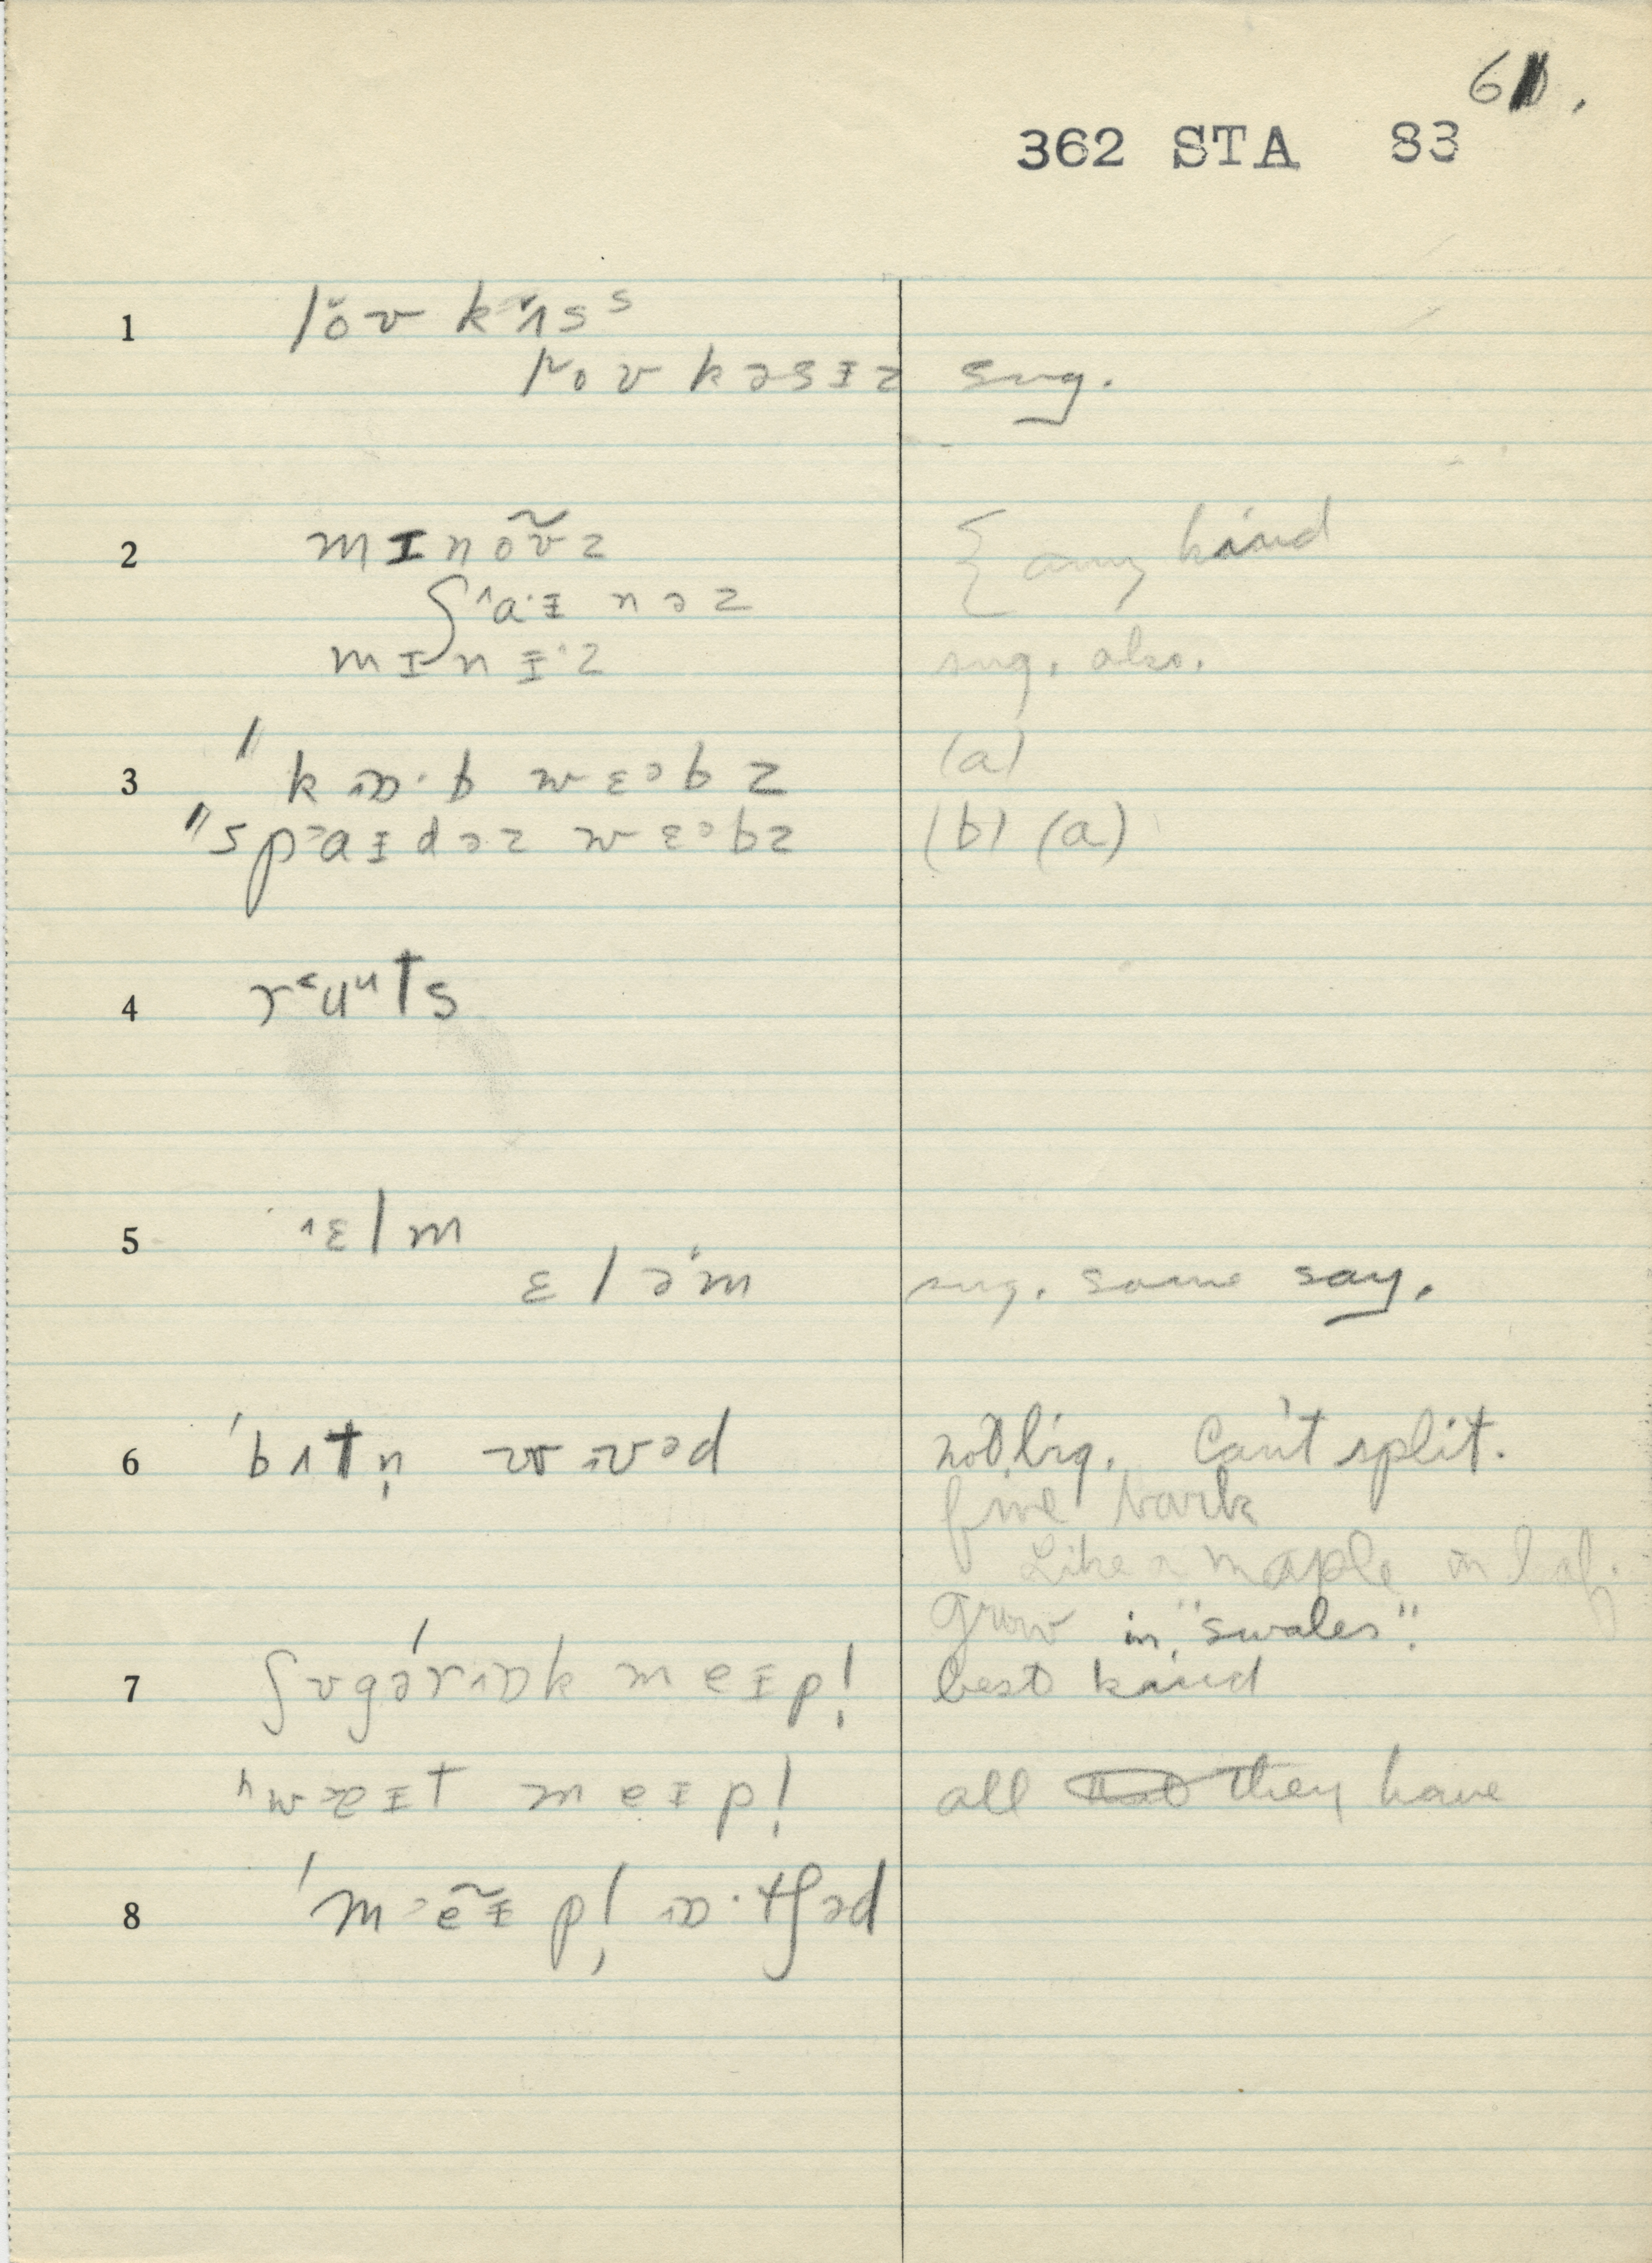 61.
362 STA 83
1 lŏʊ kɪ̌sˢ
loʊ kəsɪz sug.
2 mɪnõʊz { any kind
ʃˆaɪ nəz
mɪnɪ·z sug. also.
3 kɒ·b wɛəbz (a)
spaɪdəz wɛəbz (b) (a)
4 rᵋuᵘts
5 ˄ɛlm
ɛləm sug. some say.
6 ˈbɪtn̩ wʊəd not big. Can't split.
fine bark
Like a maple in leaf.
Grow in "swales".
7 ʃʊgərɒk meɪpl̩ best kind
ʰwaɪt meɪpl̩ all they have
8 ˈmeɪpl̩ ɒ·tʃəd